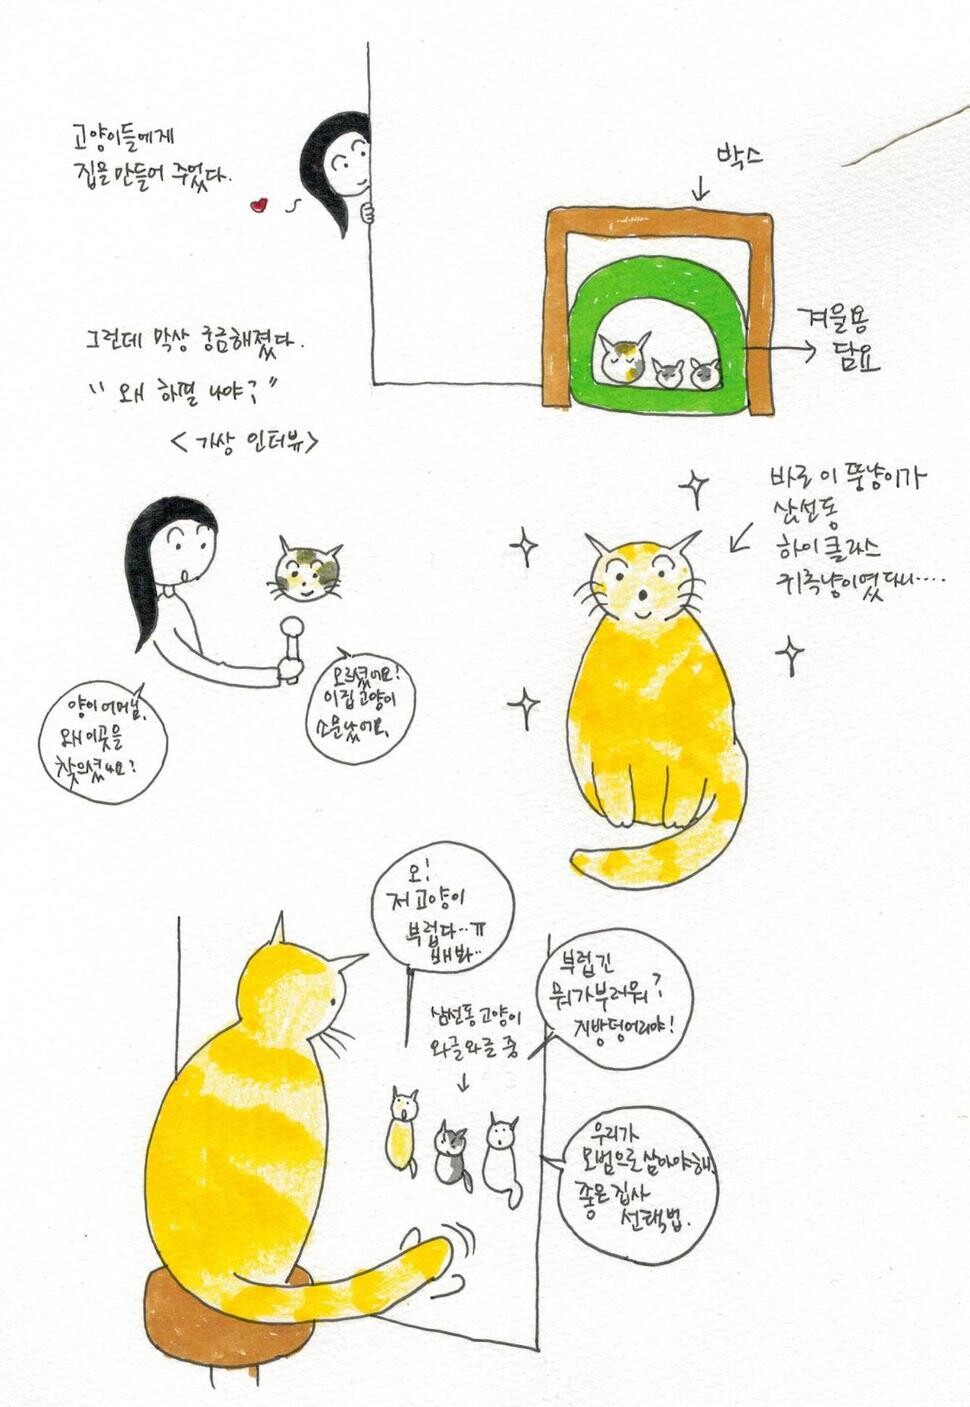 고양이들에게
집을 만들어 주었다.
박스
겨울용
담요
그런데 막상 궁금해졌다.
"왜 하필 나야?"
<가상 인터뷰>
바로 이 뚱냥이가
삼선동
하이클라스
귀족냥이였다니....
양이어머님,
왜 이곳을
찾으셨나요?
모르셨어요!
이집 고양이
소문났어요.
오!
저 고양이
부럽다..ㅠ
배봐..
삼선동 고양이
와글와글 중
부럽긴
뭐가부러워?
지방덩어리야!
우리가
모범으로 삼아야해.
좋은 집사
선택법.